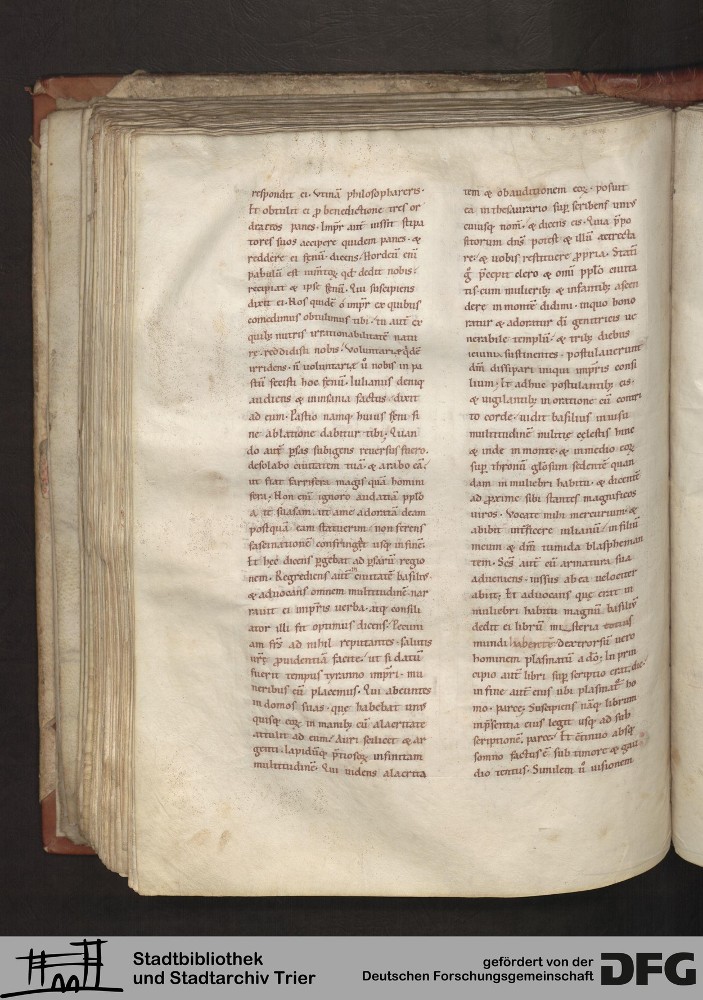 respondit ei. Vtinā philosophareris.
Et obtulit ei ꝓ benedictione tres or
deaceos panes. Imp̄r aut̄ iussit stipa
tores suos accipere quidem panes. &
reddere ei fęnū. dicens. Hordeū eni
pabulū est iumtoꝝ qd dedit nobis.
recipiat & ipse fęnū. Qui suscipiens
dixit ei. Nos quidē o imp̄r ex quibus
comedimus obtulimus tibi. tu aut̄ ex
quibꝫ nutris irrationabilitatē natu
rę. reddidisti nobis. Voluntarie qdē
irridens. n̄ voluntarie ū nobis in pa
stū fecisti hoc fęnū. Iulianus deniq
audiens & in insania factus. dixit
ad eum. Pastio namq huius feni si
ne ablatione dabitur tibi. Quan
do aut̄ ꝑsas subigens reuersus fuero.
desolabo ciuitatem tuā. & arabo eā.
ut fiat farrifera magis quā homini
fera. Non eni ignoro audatiā pplo
a te suasam. ut a me adoratā deam
postquā eam statuerim. non ferens
fascinationē confringet usq in finē.
Et hęc dicens ꝑgebat ad ꝑsarū regio
nem. Regrediens aut̄ in ciuitatē basiliꝰ
& aduocans omnem multitudinē. nar
rauit ei imp̄ris uerba. atq consili
ator illi fit optimus dicens. Pecuni
am frs̄ ad nihil reputantes. salutis
urę ꝓuidentiā facite. ut si datū
fuerit tempus tyranno imp̄ri. mu
neribus eū placemus. Qui abeuntes
in domos suas. quę habebat unꝰ
quisq eoꝝ in manibꝫ cū alacritate
attulit ad eum. Auri scilicet & ar
genti. lapidūq p̄tiosoꝝ infinitam
multitudinē. Qui uidens alacrita
tem & obauditionem eoꝝ. posuit
ea in thesaurario suꝑ scribens unꝰ
cuiusq nom̄. & dicens eis. Quia p̄po
sitorum dn̄s potest & illū attrecta
re. & uobis restituere ꝓpria. Statī
g p̄cepit clero & omi pplo ciuita
tis cum mulieribꝫ & infantibꝫ ascen
dere in montē didimi. in quo hono
ratur & adoratur di genitricis ue
nerabile templū. & tribꝫ diebus
ieiuniū sustinentes. postulauerunt
dm̄ dissipari iniqui imp̄ris consi
lium. Et adhuc postulantibꝫ eis.
& uigilantibꝫ in oratione cū contri
to corde. uidit basilius in uisu
multitudinē militię cęlestis hinc
& inde in monte. & in medio eoꝝ
suꝑ thronū gl̄osum sedentē quan
dam in muliebri habitu. & dicentē
ad ꝓxime sibi stantes magnificos
uiros. Vocate mihi mercurium. &
abibit int̄ficere iulianū. in filiū
meum & dm̄ tumida blaspheman
tem. Scs̄ aut̄ cū armatura sua
adueniens. iussus ab ea uelociter
abiit. Et aduocans quę erat in
muliebri habitu magnū basiliū
dedit ei librū misteria totius
mundi habentē. dextrorsū uero
hominem plasmatū a dō. In prin
cipio aut̄ libri suꝑ scriptio erat. dic.
in fine aut̄ eius ubi plasmatꝰ ho
mo. parce. Suscipiens nāq librum
in p̄sentia eius legit usq ad sub
scriptionē. parce. Et cōtinuo absq
somno factus ē. sub timore & gau
dio tentus. Similem ū uisionem
Stadtbibliothek
und Stadtarchiv Trier
gefördert von der
Deutschen Forschungsgemeinschaft
DFG